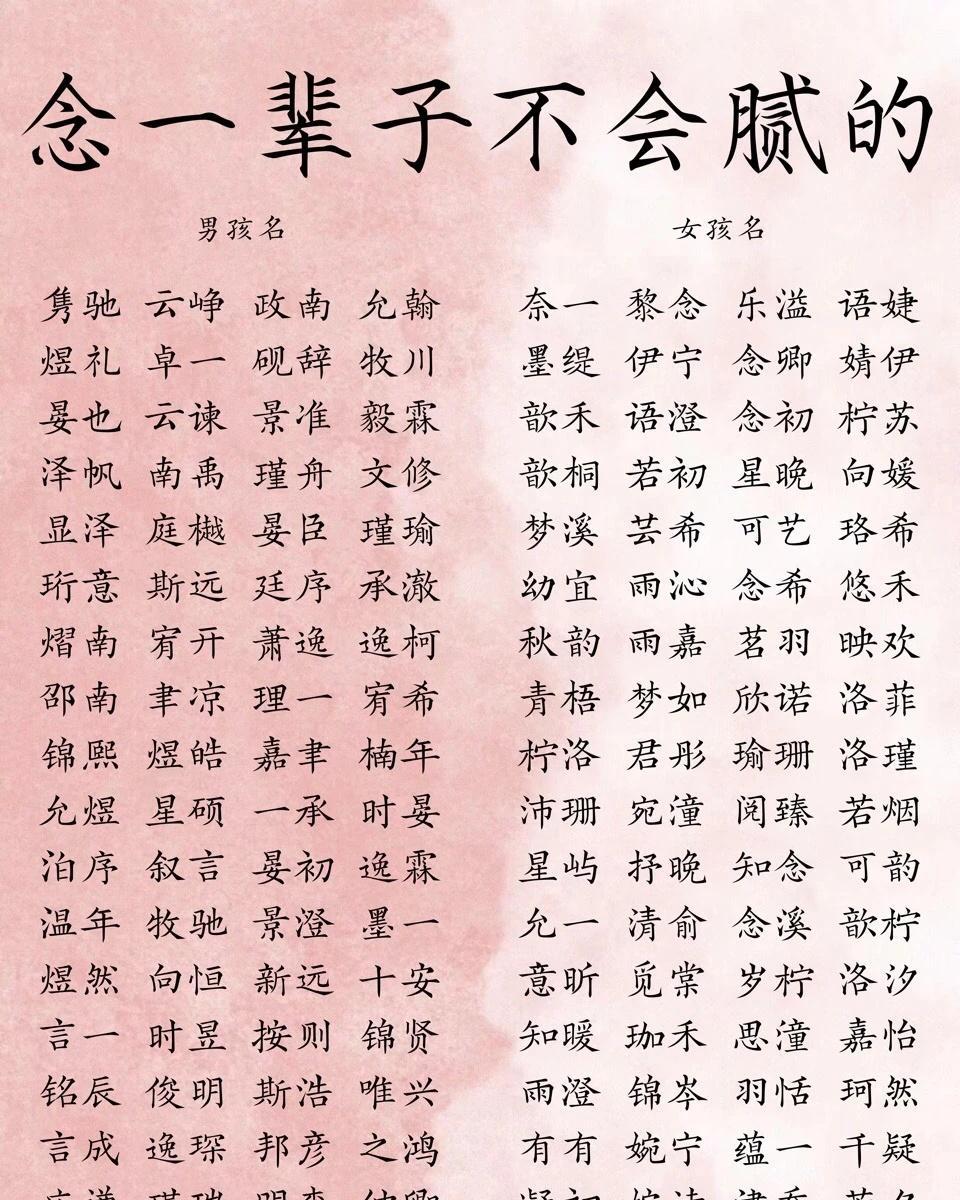 念一辈子不会腻的
男孩名 女孩名
隽驰 云峥 政南 允翰 奈一 黎念 乐溢 语婕
煜礼 卓一 砚辞 牧川 墨缇 伊宁 念卿 婧伊
晏也 云谏 景准 毅霖 歆禾 语澄 念初 柠苏
泽帆 南禹 瑾舟 文修 歆桐 若初 星晚 向媛
显泽 庭樾 晏臣 瑾瑜 梦溪 芸希 可艺 珞希
珩意 斯远 廷序 承澈 幼宜 雨沁 念希 悠禾
熠南 宥开 萧逸 逸柯 秋韵 雨嘉 茗羽 映欢
邵南 聿凉 理一 宥希 青梧 梦如 欣诺 洛菲
锦熙 煜皓 嘉聿 楠年 柠洛 君彤 瑜珊 洛瑾
允煜 星硕 一承 时晏 沛珊 宛潼 阅臻 若烟
泊序 叙言 晏初 逸霖 星屿 抒晚 知念 可韵
温年 牧驰 景澄 墨一 允一 清俞 念溪 歆柠
煜然 向恒 新远 十安 意昕 觅棠 岁柠 洛汐
言一 时昱 按则 锦贤 知暖 珈禾 思潼 嘉怡
铭辰 俊明 斯浩 唯兴 雨澄 锦岑 羽恬 珂然
言成 逸琛 邦彦 之鸿 有有 婉宁 蕴一 千疑